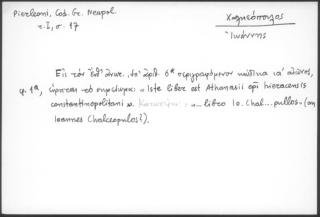 Pierleoni, Cod. Gr. Neapol.
τ. I, σ. 17
Χαλκεόπουλος
Ἰωάννης
Εἰς τὸν ὑπ' ἀριθ. 6* περιγραφόμενον κώδικα ια' αἰῶνος,
φ. 1α, ὑπάρχει τὸ σημείωμα: "Iste liber est Athanasii epi hieracensis
constantinopolitani κ. "... libro Io. Chal...pullos" (an
Ioannes Chalceopulos?).